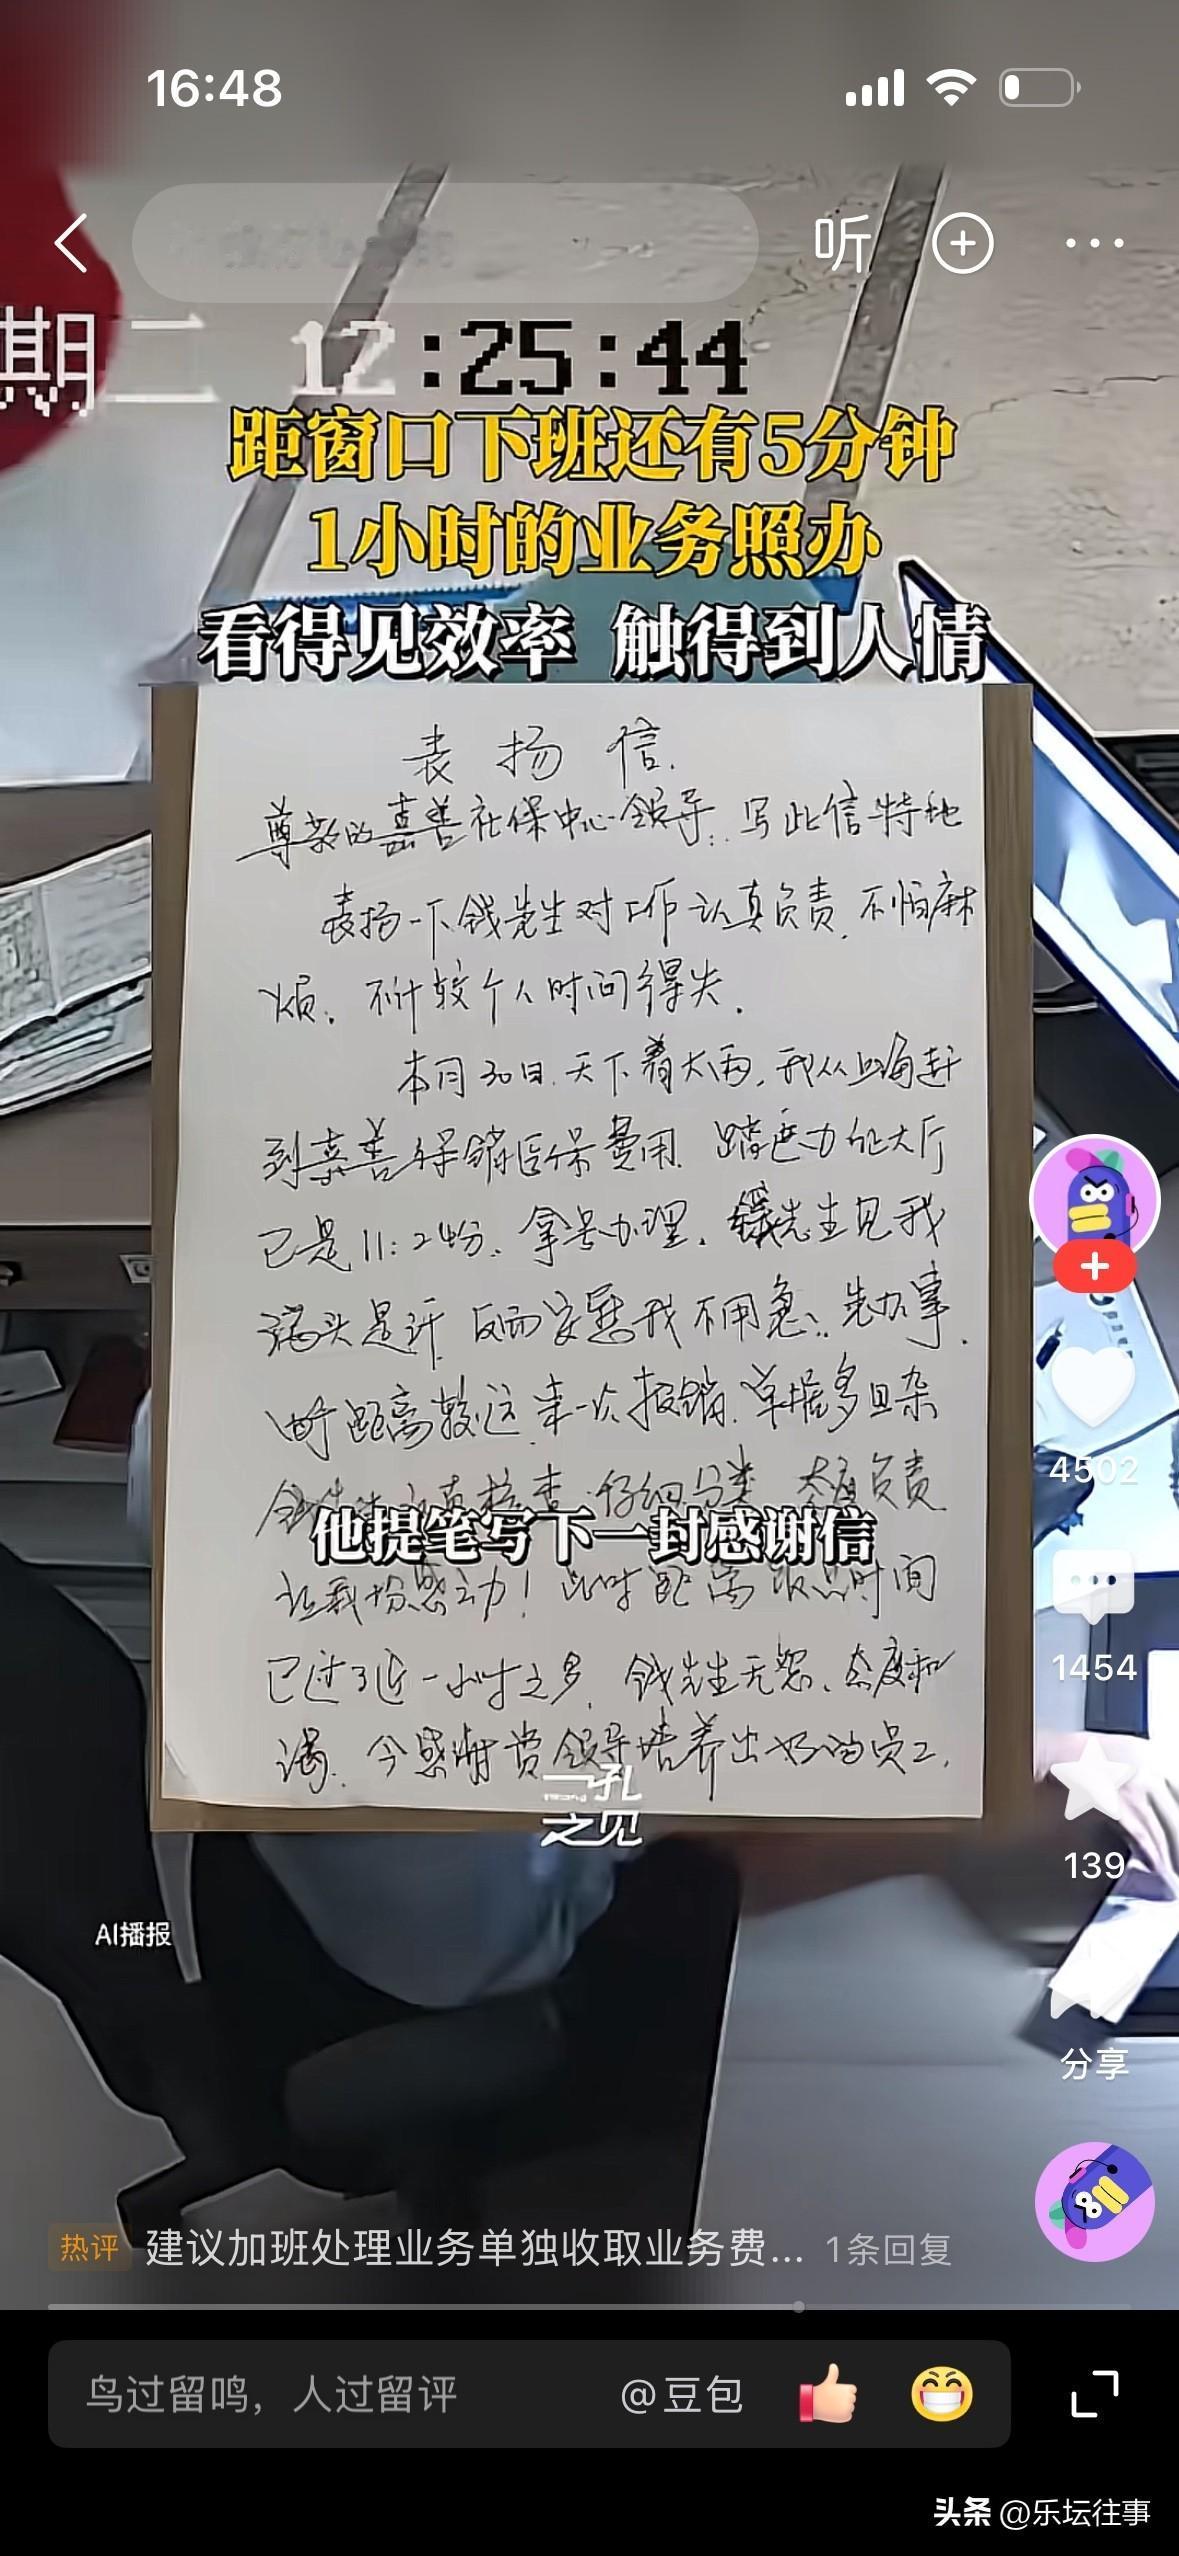 16:48
听
期二 12:25:44
距窗口下班还有5分钟
1小时的业务照办
看得见效率 触得到人情
表扬信.
尊敬的嘉善社保中心领导：写此信特地
表扬一下钱先生对工作认真负责，不怕麻
烦，不计较个人时间得失.
本月30日，天下着大雨，我从上海赶
到嘉善保销医保费用，踏进办他大厅
已是11:24分，拿号办理，钱先生见我
满头是汗，反而安慰我不用急，先办事.
由于距离较远，来一次报销，单据多且杂
钱先生 核查，仔细分类，态度负责
他提笔写下一封感谢信
让我份感动！此时距离 时间
已过了近一小时之多，钱先生无怨，态度和
谒，今感谢贵领导培养出好的员工，
一孔
之见
4502
1454
139
AI播报
分享
热评 建议加班处理业务单独收取业务费... 1条回复
鸟过留鸣，人过留评 @豆包
头条 @乐坛往事